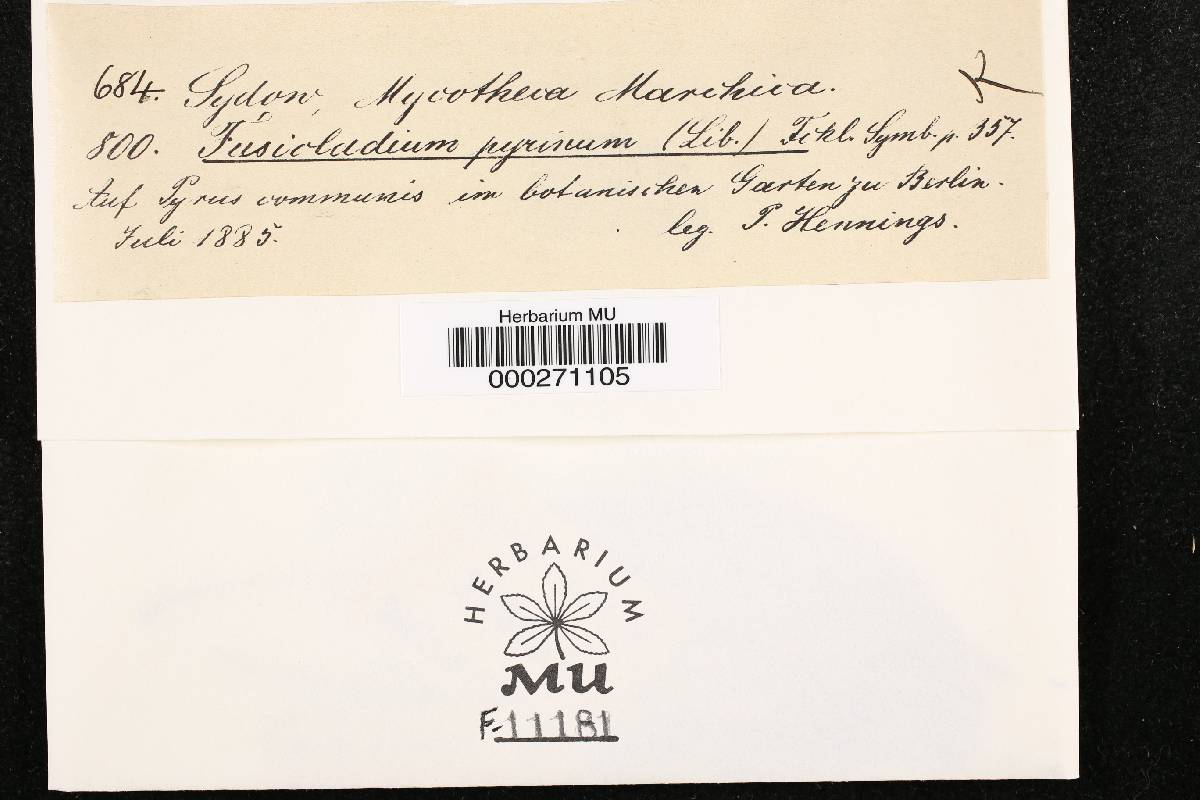 684. Sydow, Mycotheca Marchica.
R
800. Fusicladium pyrinum (Lib.) Fckl. Symb. p. 357.
Auf Pyrus communis im botanischen Garten zu Berlin.
Juli 1885. leg. P. Hennings.
Herbarium MU
000271105
HERBARIUM
MU
F-11181